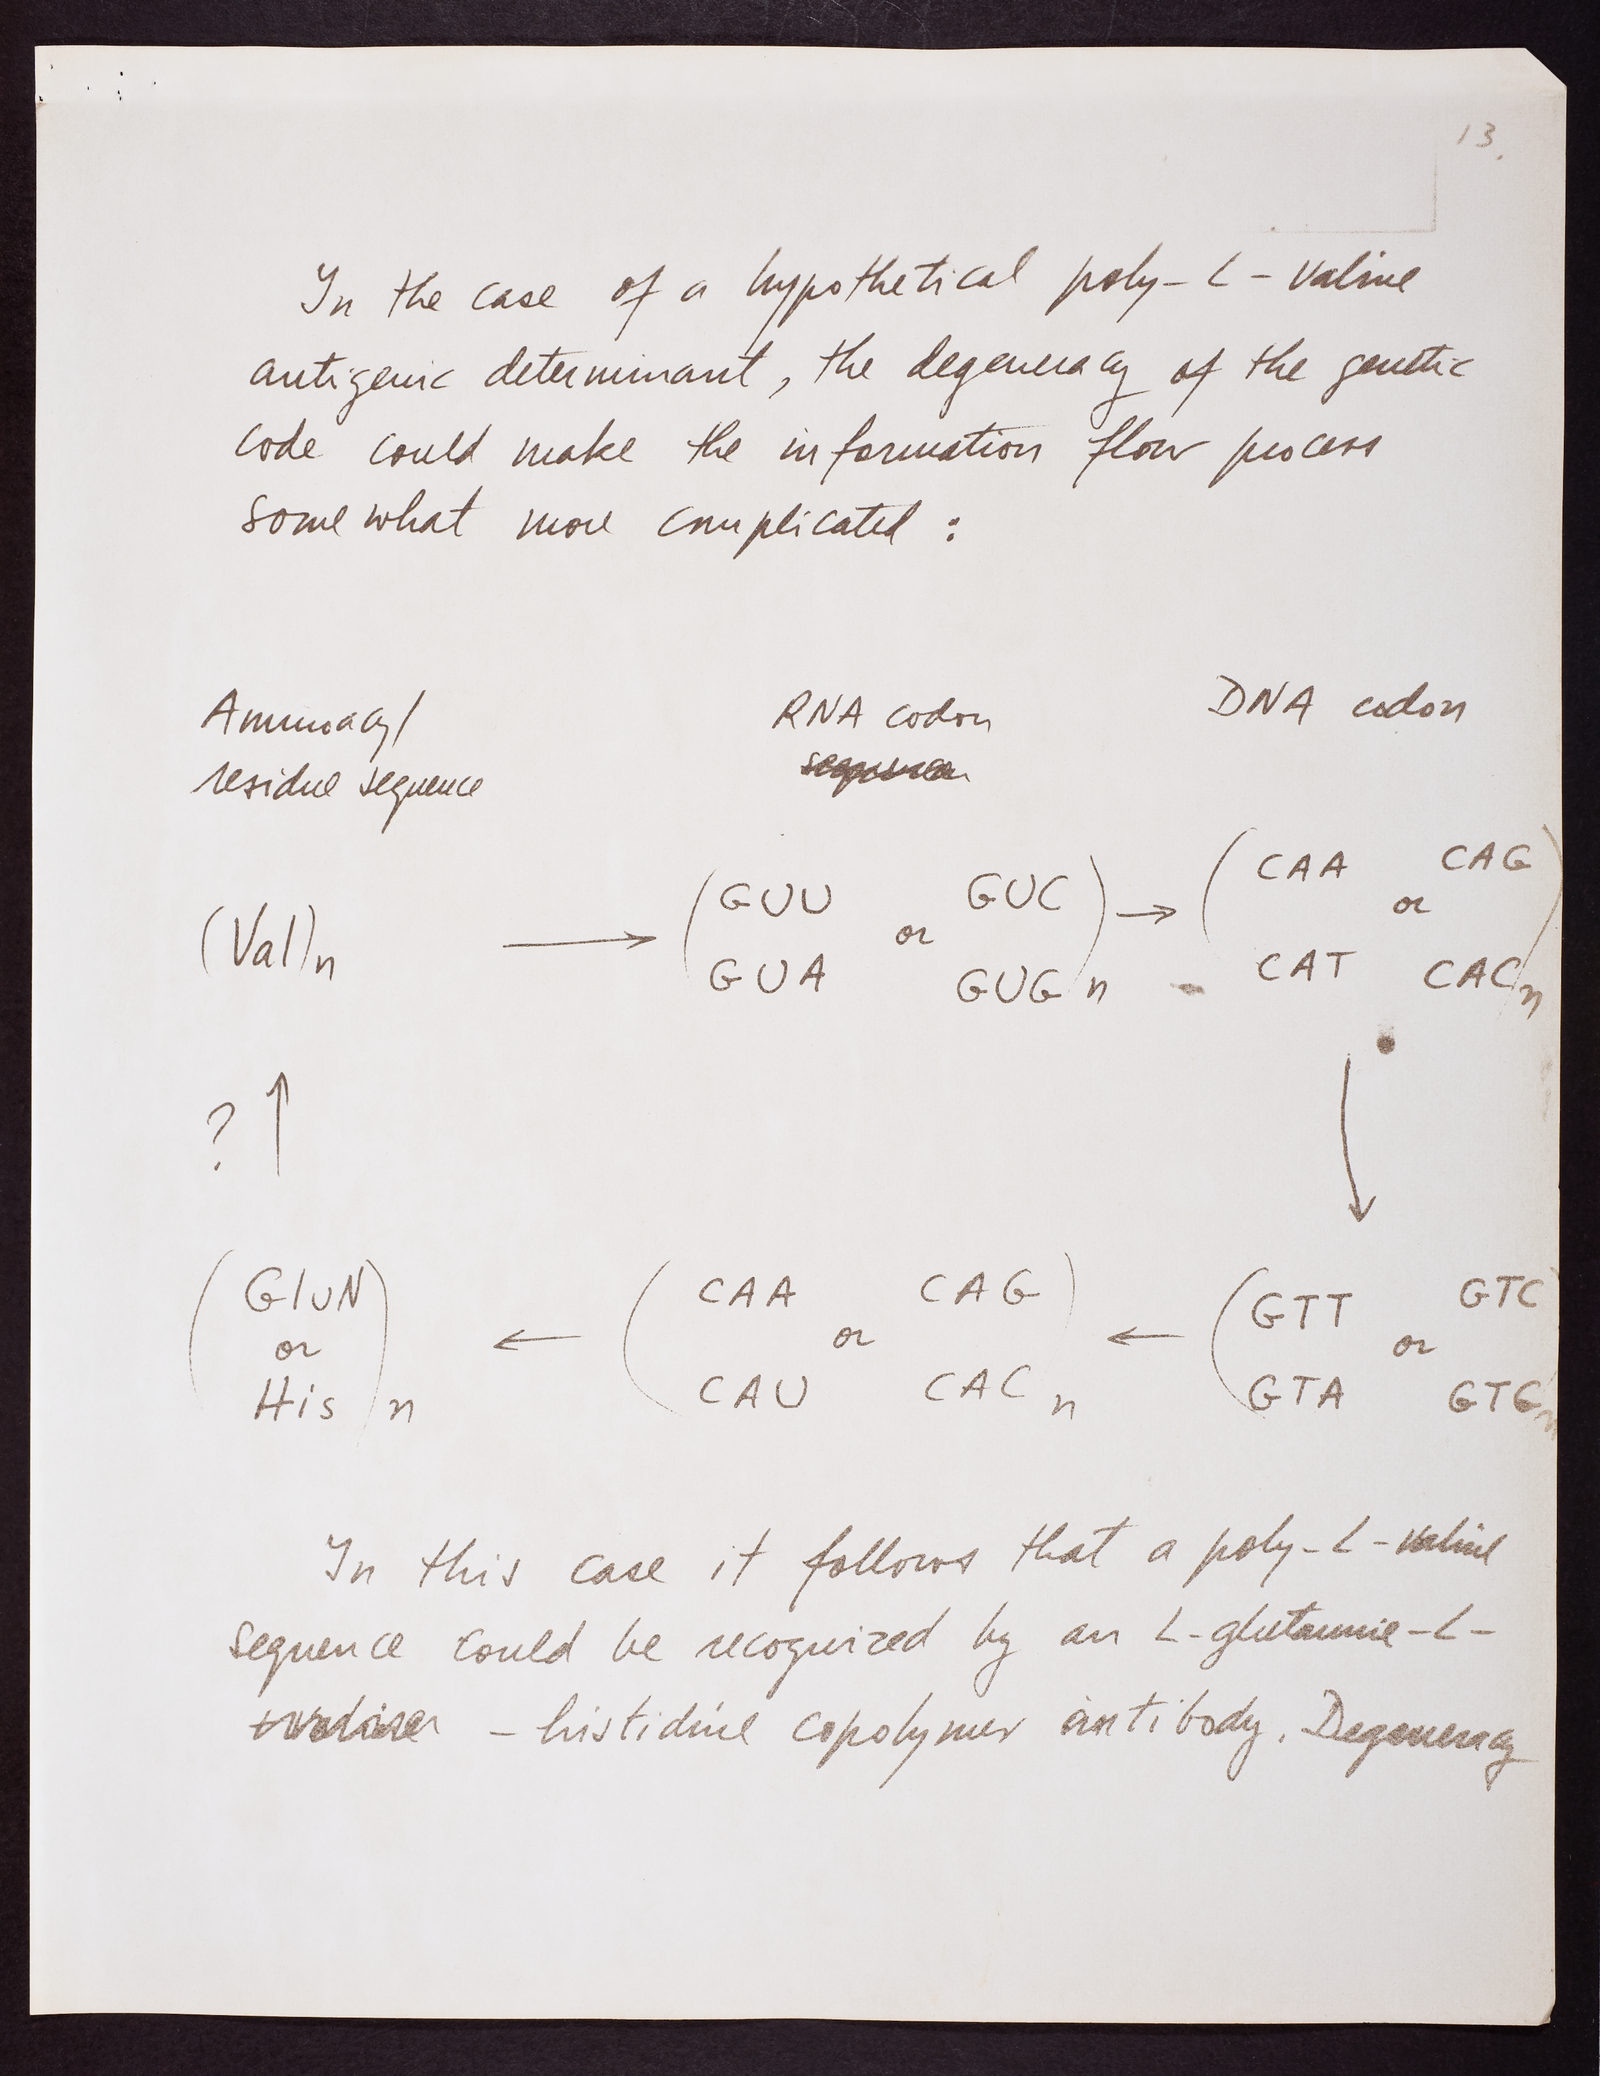 13.
In the case of a hypothetical poly-L-valine
antigenic determinant, the degeneracy of the genetic
code could make the information flow process
somewhat more complicated:
Aminoacyl RNA codon DNA codon
residue sequence sequence
(GUU or GUC) → (CAA or CAG)
(Val)n → GUA GUG n CAT CAC n
? ↑ ↓
(GluN) (CAA CAG) (GTT GTC)
or ← or ← or
His n CAU CAC n GTA GTG n
In this case it follows that a poly-L-valine
sequence could be recognized by an L-glutamine-L-
-histidine copolymer antibody. Degeneracy